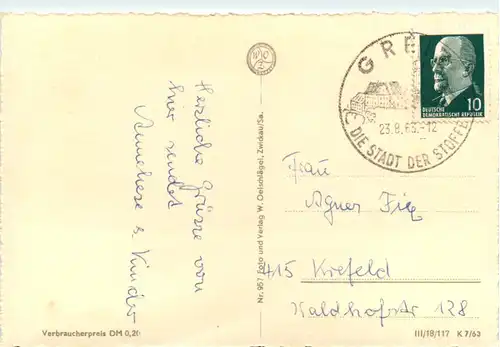 Herzliche Grüsse von
hier sendet
Annehese & Kinder
Verbraucherpreis DM 0,20
Nr. 957 Foto und Verlag W. Oelschlägel, Zwickau/Sa.
GRE
23.8.63.-12
DIE STADT DER STOFFE
DEUTSCHE
DEMOKRATISCHE REPUBLIK
10
Frau
Agnes
415 Krefeld
Waldhofstr 128
III/18/117 K 7/63